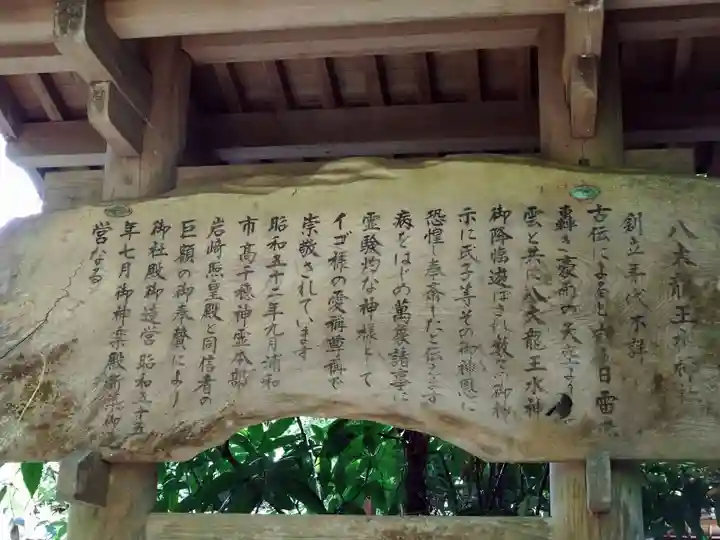 八大龍王水神社
創立年代不詳
古伝によると六月日雷
轟き豪雨の天空より
雲と共に八大龍王水神
御降臨遊ばされ数々御神
示に氏子等その御神恩に
恐惶し奉斎したと伝えます
病をはじめ萬衆諸事に
霊験灼な神様として
イゴ様の愛称尊称で
崇敬されています
昭和五十一年九月浦和
市高千穂神霊本部
岩崎照皇殿と同信者の
巨額の御奉賛により
御社殿御造営昭和五十五
年七月御神楽殿新築御造
営なる